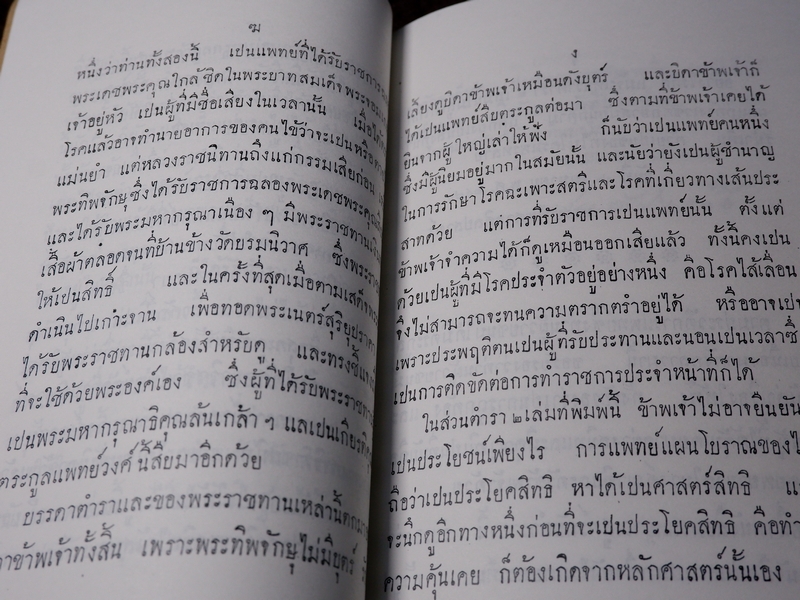 ฆ
หนึ่งว่าท่านทั้งสองนี้ เป็นแพทย์ที่ได้รับราชการ
พระเดชพระคุณใกล้ชิดในพระบาทสมเด็จพระจอม
เจ้าอยู่หัว เป็นผู้ที่มีชื่อเสียงในเวลานั้น เมื่อได้
โรคแล้วอาจทำนายอาการของคนไข้ว่าจะเป็นหรือ
แม่นยำ แต่หลวงราชนิทานถึงแก่กรรมเสียก่อน
พระทิพจักษุซึ่งได้รับราชการฉลองพระเดชพระคุณ
และได้รับพระมหากรุณาเนือง ๆ มีพระราชทาน
เสื้อผ้าตลอดจนที่บ้านข้างวัดบรมนิวาศ ซึ่งพระรา
ให้เป็นสิทธิ์ และในครั้งที่สุดเมื่อตามเสด็จ
ดำเนินไปเกาะจาน เพื่อทอดพระเนตร์สุริยุปรา
ได้รับพระราชทานกล้องสำหรับดู และทรงชี้แจง
ที่จะใช้ด้วยพระองค์เอง ซึ่งผู้ที่ได้รับพระราชทา
เป็นพระมหากรุณาธิคุณล้นเกล้า ๆ แลเป็นเกียรติ
ตระกูลแพทย์วงศ์นี้สืบมาอีกด้วย
บรรดาตำราและของพระราชทานเหล่านี้ตก
าข้าพเจ้าทั้งสิ้น เพราะพระทิพจักษุไม่มีบุตร์
ง
เลี้ยงดูบิดาข้าพเจ้าเหมือนดังบุตร์ และบิดาข้าพเจ้าก็
ได้เป็นแพทย์สืบตระกูลต่อมา ซึ่งตามที่ข้าพเจ้าเคยได้
ยินจากผู้ใหญ่เล่าให้ฟัง ก็นับว่าเป็นแพทย์คนหนึ่ง
ซึ่งมีผู้นิยมอยู่มากในสมัยนั้น และนัยว่ายังเป็นผู้ชำนาญ
ในการรักษาโรคฉะเพาะสตรีและโรคที่เกี่ยวทางเส้นประ
สาทด้วย แต่การที่รับราชการเป็นแพทย์นั้น ตั้งแต่
ข้าพเจ้าจำความได้ก็ดูเหมือนออกเสียแล้ว ทั้งนี้คงเป็น
ด้วยเป็นผู้ที่มีโรคประจำตัวอยู่อย่างหนึ่ง คือโรคไส้เลื่อน
จึ่งไม่สามารถจะทนความตรากตรำอยู่ได้ หรืออาจเป็น
เพราะประพฤติตนเป็นผู้ที่รับประทานและนอนเป็นเวลาซึ่
เป็นการติดขัดต่อการทำราชการประจำหน้าที่ก็ได้
ในส่วนตำรา ๒ เล่มที่พิมพ์นี้ ข้าพเจ้าไม่อาจยืนยัน
เป็นประโยชน์เพียงไร การแพทย์แผนโบราณของไ
ถือว่าเป็นประโยคสิทธิ หาได้เป็นศาสตร์สิทธิ แ
จะนึกดูอีกทางหนึ่งก่อนที่จะเป็นประโยคสิทธิ คือทำ
ความคุ้นเคย ก็ต้องเกิดจากหลักศาสตร์นั้นเอง